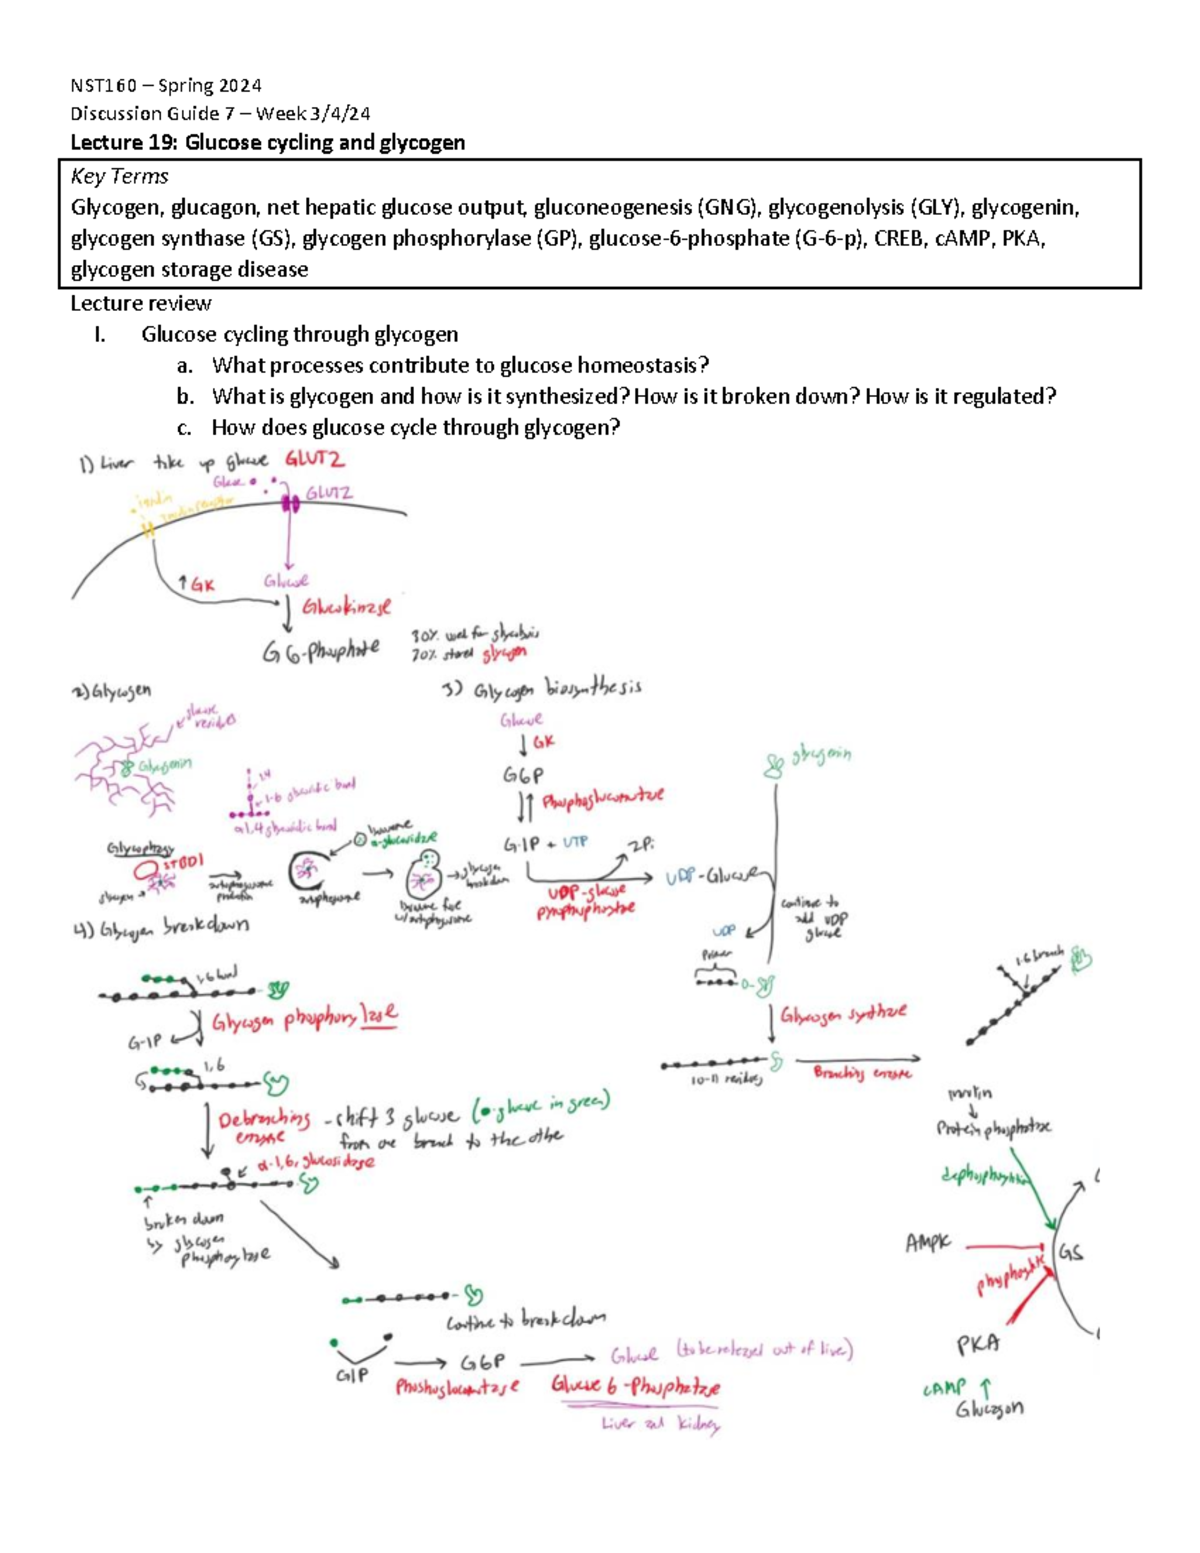 NST160 – Spring 2024
Discussion Guide 7 – Week 3/4/24
Lecture 19: Glucose cycling and glycogen
Key Terms
Glycogen, glucagon, net hepatic glucose output, gluconeogenesis (GNG), glycogenolysis (GLY), glycogenin,
glycogen synthase (GS), glycogen phosphorylase (GP), glucose-6-phosphate (G-6-p), CREB, cAMP, PKA,
glycogen storage disease
Lecture review
I. Glucose cycling through glycogen
a. What processes contribute to glucose homeostasis?
b. What is glycogen and how is it synthesized? How is it broken down? How is it regulated?
c. How does glucose cycle through glycogen?
1) Liver take up glucose GLUT2
Glucose
GLUT2
insulin
insulin receptor
↑ GK
Glucose
Glucokinase
G 6-Phosphate
30% used for glycolysis
70% stored glycogen
2) Glycogen
glucose residues
Glycogenin
1,4
1-6 glucosidic bond
α1,4 glucosidic bond
Glycophagy
STBD1
glycogen
autophagosome
lysosome
α-glucosidase
autophagosome
lysosome fuse
w/autophagosome
glycogen
breakdown
3) Glycogen biosynthesis
Glucose
GK
G6P
Phosphoglucomutase
G-1P + UTP
2Pi
UDP-glucose
pyrophosphatase
UDP-Glucose
glycogenin
UDP
continue to
add UDP
glucose
Primer
Glycogen synthase
10-11 residues
Branching enzyme
1-6 branch
4) Glycogen breakdown
1,6 bond
Glycogen phosphorylase
G-1P
1,6
Debranching enzyme
- shift 3 glucose (●-glucose in green)
from one branch to the other
α-1,6, glucosidase
broken down
by glycogen
phosphorylase
Continue to breakdown
G1P
G6P
Glucose (to be released out of liver)
Phosphoglucomutase
Glucose 6-Phosphatase
Liver and kidney
insulin
Protein phosphatase
dephosphorylation
AMPK
GS
PKA
cAMP ↑
Glucagon